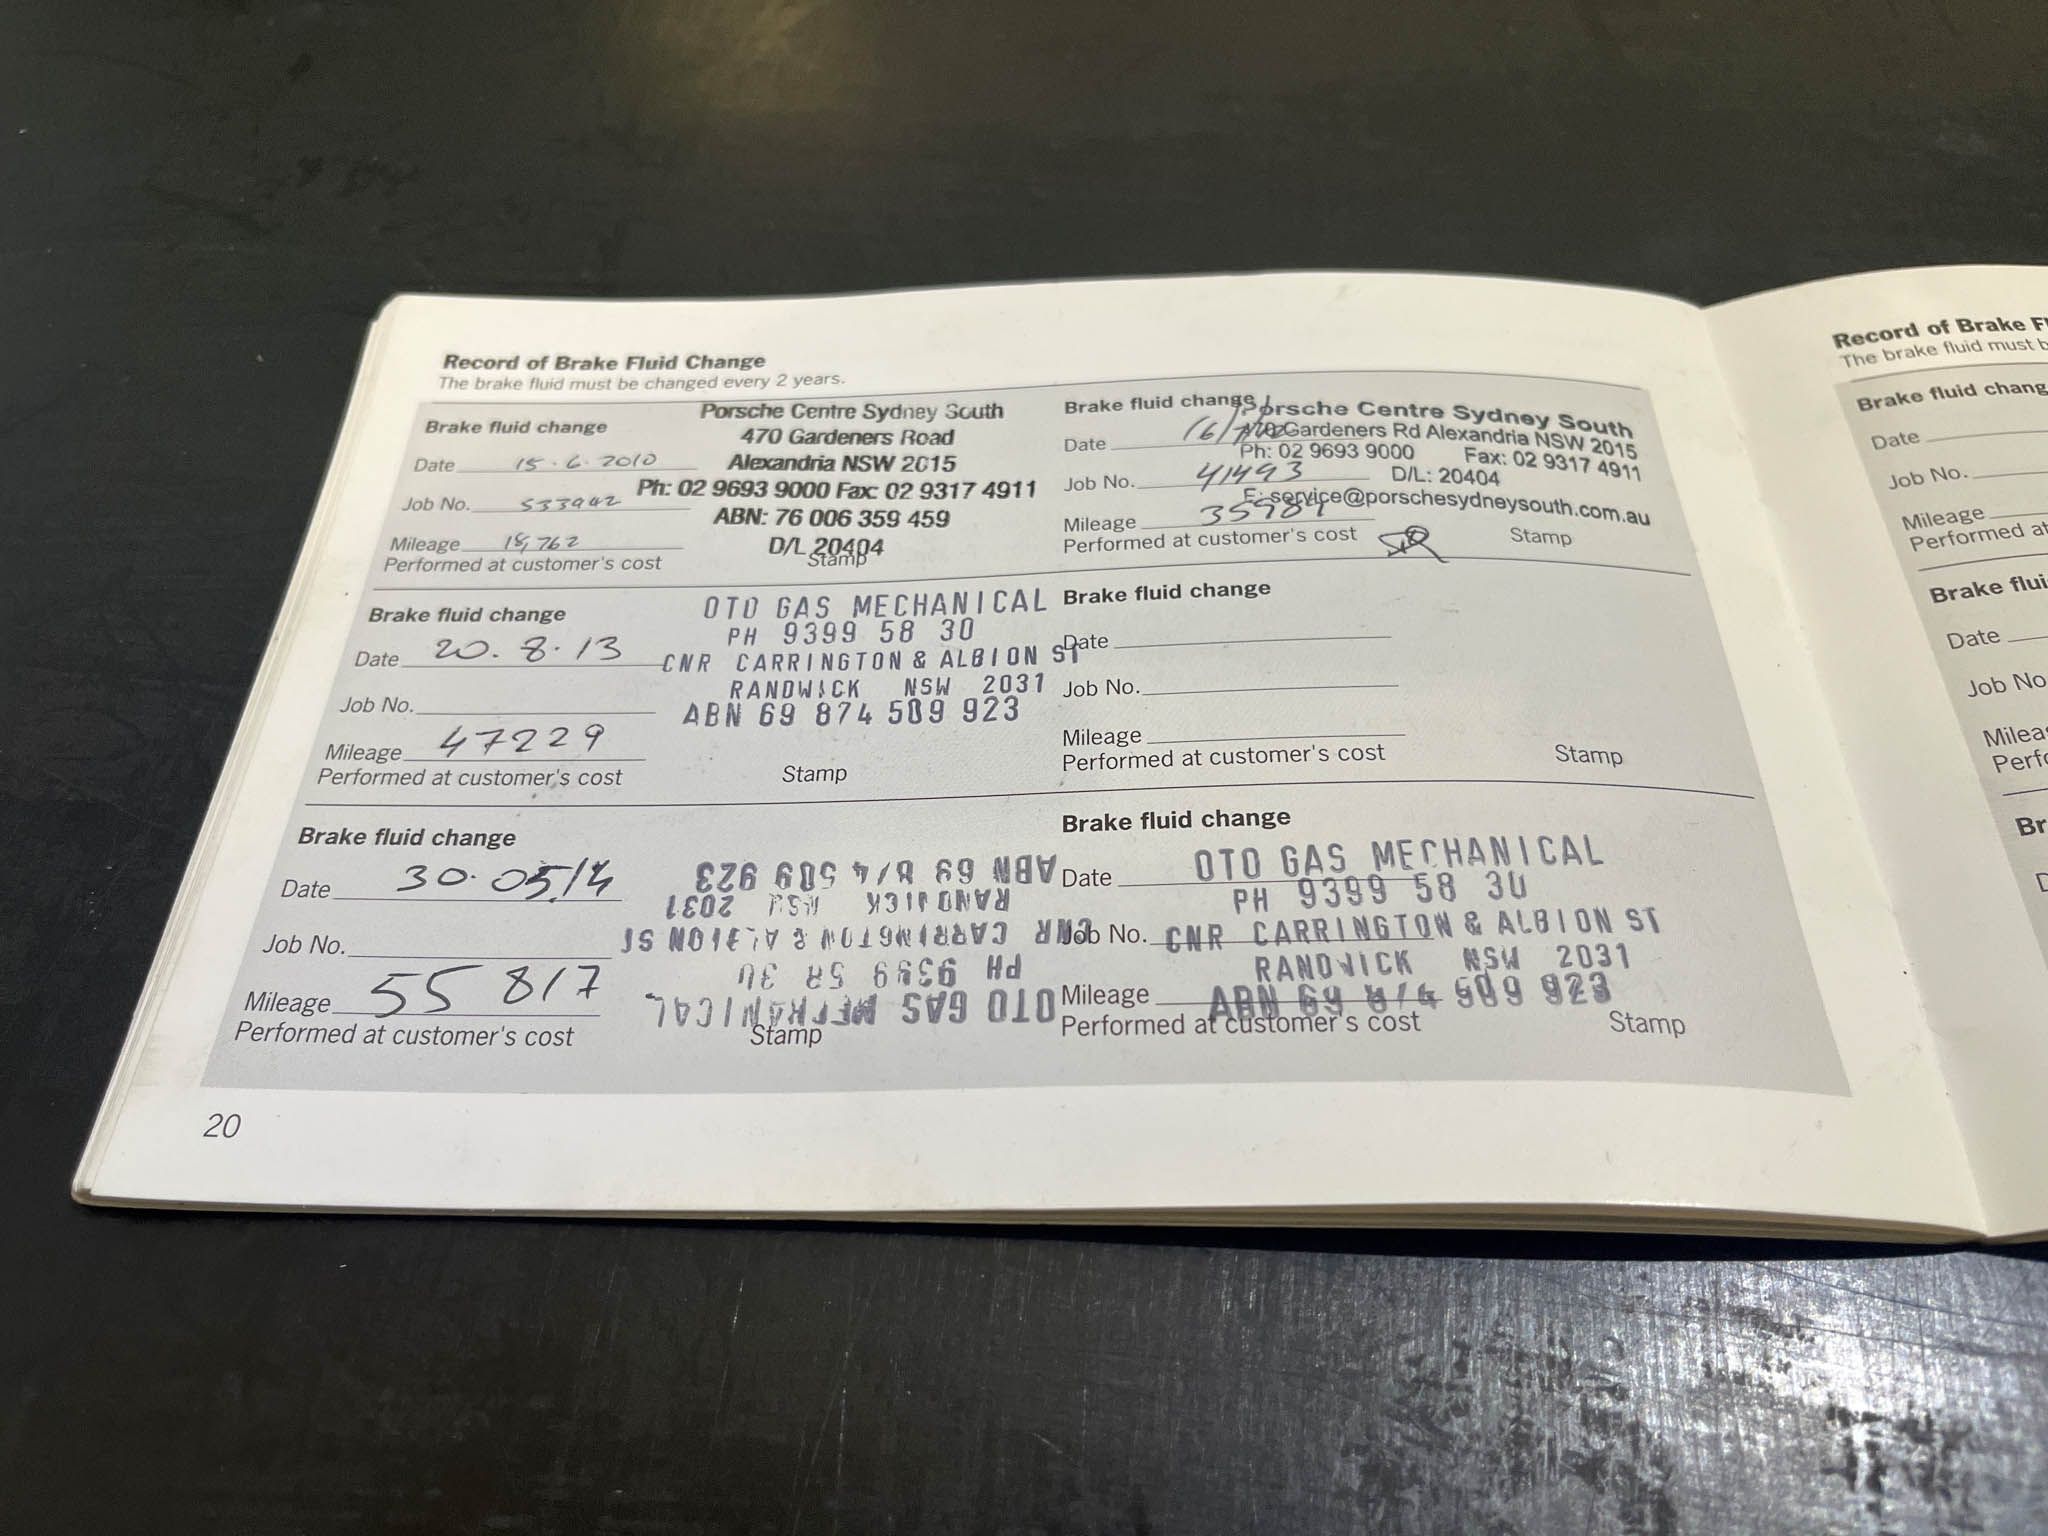 Record of Brake Fluid Change
The brake fluid must be changed every 2 years.
Brake fluid change
Date 15.6.2010
Job No. 533942
Mileage 18,762
Performed at customer's cost
Porsche Centre Sydney South
470 Gardeners Road
Alexandria NSW 2015
Ph: 02 9693 9000 Fax: 02 9317 4911
ABN: 76 006 359 459
D/L 20404
Stamp
Brake fluid change
Date
Job No. 41493
Mileage 35984
Performed at customer's cost
Porsche Centre Sydney South
Gardeners Rd Alexandria NSW 2015
Ph: 02 9693 9000 Fax: 02 9317 4911
D/L: 20404
E: service@porschesydneysouth.com.au
Stamp
Brake fluid change
Date 20.8.13
Job No.
Mileage 47229
Performed at customer's cost
OTO GAS MECHANICAL
PH 9399 58 30
CNR CARRINGTON & ALBION ST
RANDWICK NSW 2031
ABN 69 874 509 923
Stamp
Brake fluid change
Date
Job No.
Mileage
Performed at customer's cost
Stamp
Brake fluid change
Date 30.05.14
Job No.
Mileage 55817
Performed at customer's cost
OTO GAS MECHANICAL
PH 9399 58 30
CNR CARRINGTON & ALBION ST
RANDWICK NSW 2031
ABN 69 874 509 923
Stamp
Brake fluid change
Date
Job No.
Mileage
Performed at customer's cost
OTO GAS MECHANICAL
PH 9399 58 30
CNR CARRINGTON & ALBION ST
RANDWICK NSW 2031
ABN 69 874 509 923
Stamp
20
Record of Brake
The brake fluid must
Brake fluid
Date
Job No.
Mileage
Performed
Brake
Date
Job No